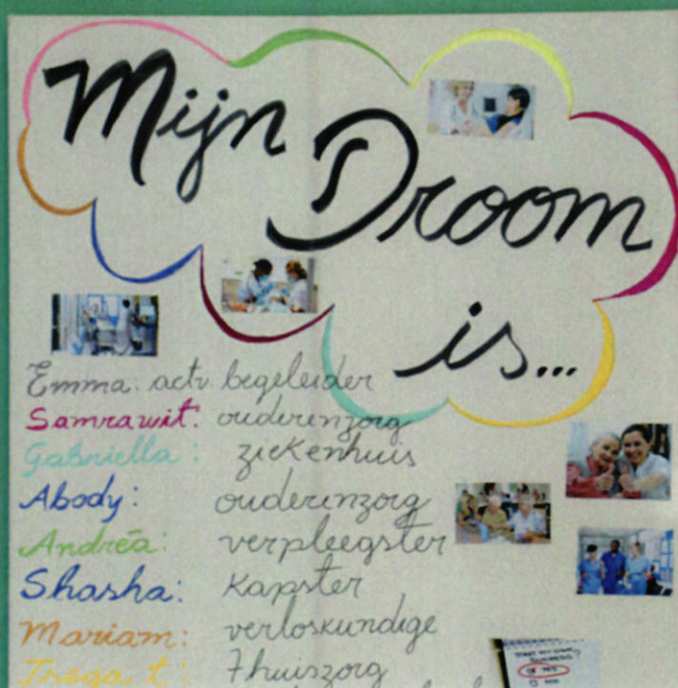 Mijn
Droom
is...
Emma: actv. begeleider
Samrawit: ouderenzorg
Gabriella: ziekenhuis
Abody: ouderenzorg
Andrea: verpleegster
Shasha: Kapster
Mariam: verloskundige
Trega t: Thuiszorg